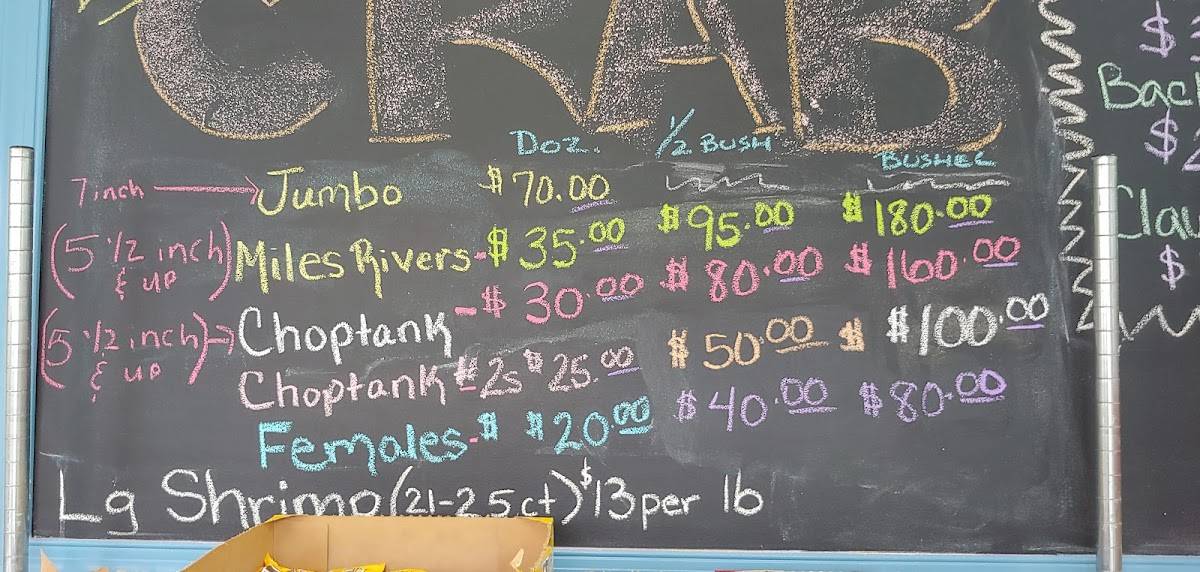 CRAB
DOZ. 1/2 BUSH BUSHEL
7 inch → Jumbo $70.00
(5 1/2 inch & up) Miles Rivers - $35.00 $95.00 $180.00
(5 1/2 inch & up) → Choptank - $30.00 $80.00 $160.00
Choptank #2s $25.00 $50.00 $ $100.00
Females - $ $20.00 $40.00 $80.00
Lg Shrimp (21-25ct) $13 per lb
$
$
$